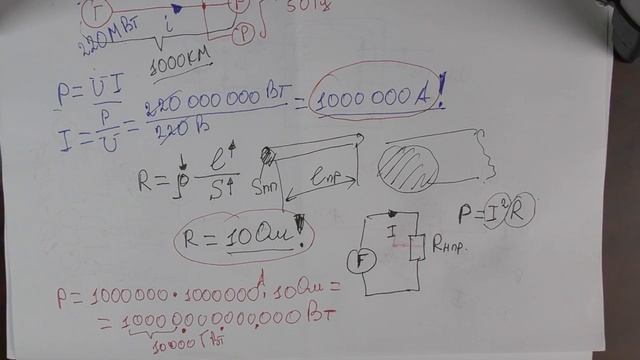 Г
50Гц
220МВт
i
Р
1000км
P = U I
I = P/U = 220 000 000 Вт / 220 В = 1000 000 А!
R = ρ l↑/S↑
Sпп
lпр
R = 10 Ом!
P = I²R
I
Rнпр.
Г
P = 1000000 · 1000000 А · 10 Ом =
= 10000000000000 Вт
10000 ГВт